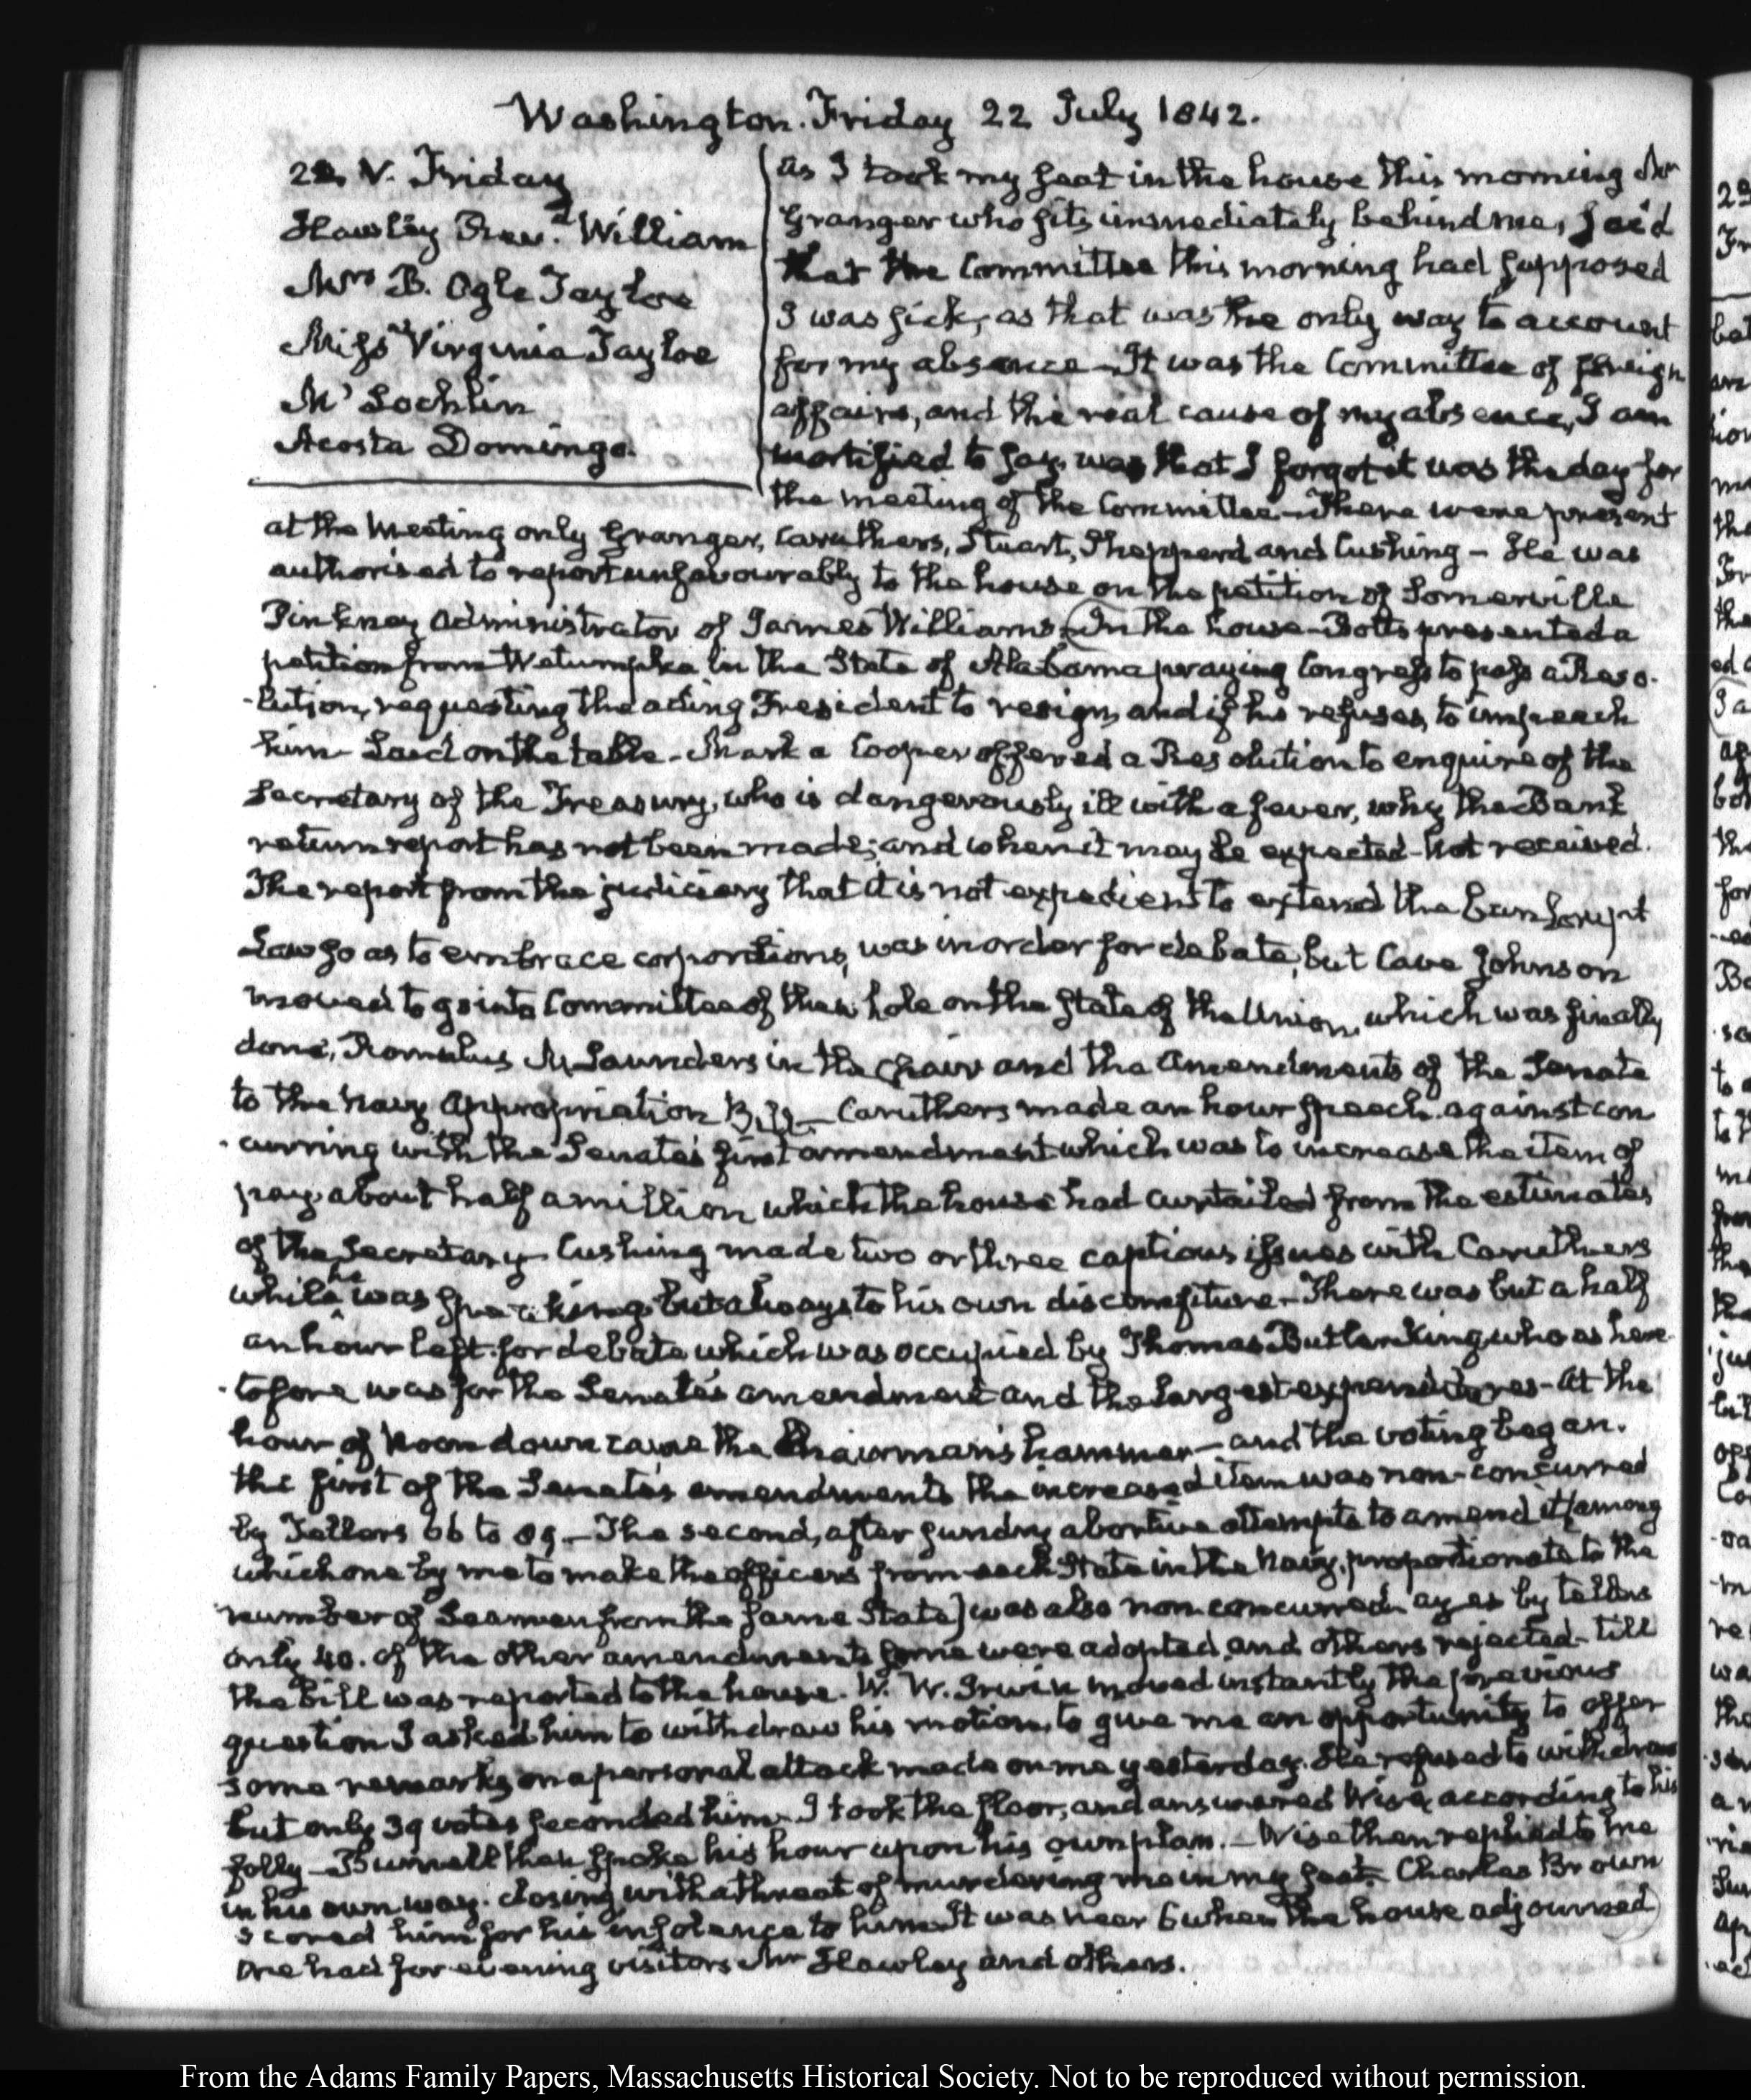 Washington. Friday 22 July 1842.
22. V. Friday
Hawley Rev.d William
Mrs B. Ogle Tayloe
Miss Virginia Tayloe
Mr Lochlin
Acosta Domingo.
As I took my seat in the house this morning Mr
Granger who sits immediately behind me, said
that the Committee this morning had supposed
I was sick, as that was the only way to account
for my absence – It was the Committee of foreign
affairs, and the real cause of my absence, I am
mortified to say, was that I forgot it was the day for
the meeting of the Committee – There were present
at the meeting only Granger, Caruthers, Stuart, Shepperd and Cushing – He was
authorised to report unfavourably to the house on the petition of Somerville
Pinkney administrator of James Williams – (In the house Botts presented a
petition from Wetumpka in the State of Alabama praying Congress to pass a Reso-
-lution, requesting the acting President to resign, and if he refuses, to impeach
him – Laid on the table – Mark A Cooper offered a Resolution to enquire of the
Secretary of the Treasury, who is dangerously ill with a fever, why the Bank
return report has not been made; and when it may be expected – not received.
The report from the judiciary that it is not expedient to extend the bankrupt
Law so as to embrace corportions, was in order for debate, but Cave Johnson
moved to go into Committee of the whole on the State of the Union, which was finally
done, Romulus M Saunders in the chair and the amendments of the Senate
to the navy appropriation Bill – Caruthers made an hour speech against con
-curring with the Senate's first amendment which was to increase the item of
pay about half a million which the house had curtailed from the estimates
of the Secretary – Cushing made two or three captious issues with Caruthers
while he was speaking, but always to his own discomfiture – There was but a half
an hour left for debate which was occupied by Thomas Butler King, who as here-
-tofore was for the Senate's amendment and the largest expenditures – At the
hour of Noon down came the Chairman's hammer – and the voting began.
the first of the Senate's amendments the increased item was non-concurred
by Tellers 66 to 89 – The second, after sundry abortive attempts to amend it [among
which one by me to make the officers from each State in the Navy, proportionate to the
number of Seamen from the same State] was also non concurred – ayes by tellers
only 40. Of the other amendments some were adopted, and others rejected – till
the bill was reported to the house. W. W. Irwin moved instantly the previous
question I asked him to withdraw his motion, to give me an opportunity to offer
some remarks on a personal attack made on me yesterday. He refused to withdraw
but only 39 votes seconded him. I took the floor, and answered Wise according to his
folly – Burnell then spoke his hour upon his own plan. – Wise then replied to me
in his own way. closing with a threat of murdering me in my seat – Charles Brown
scored him for his insolence to him – It was near 6 when the house adjourned)
We had for evening visitors Mr Hawley and others.
From the Adams Family Papers, Massachusetts Historical Society. Not to be reproduced without permission.